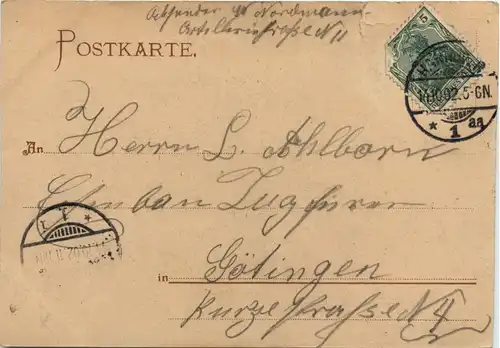 Absender W Nordmann
Artilleriestraße N 11
POSTKARTE.
5
11.10.02.5-6N.
* 1 aa
An Herrn L. Ahlborn
Zugfürer
in Götingen
Kurze straße N